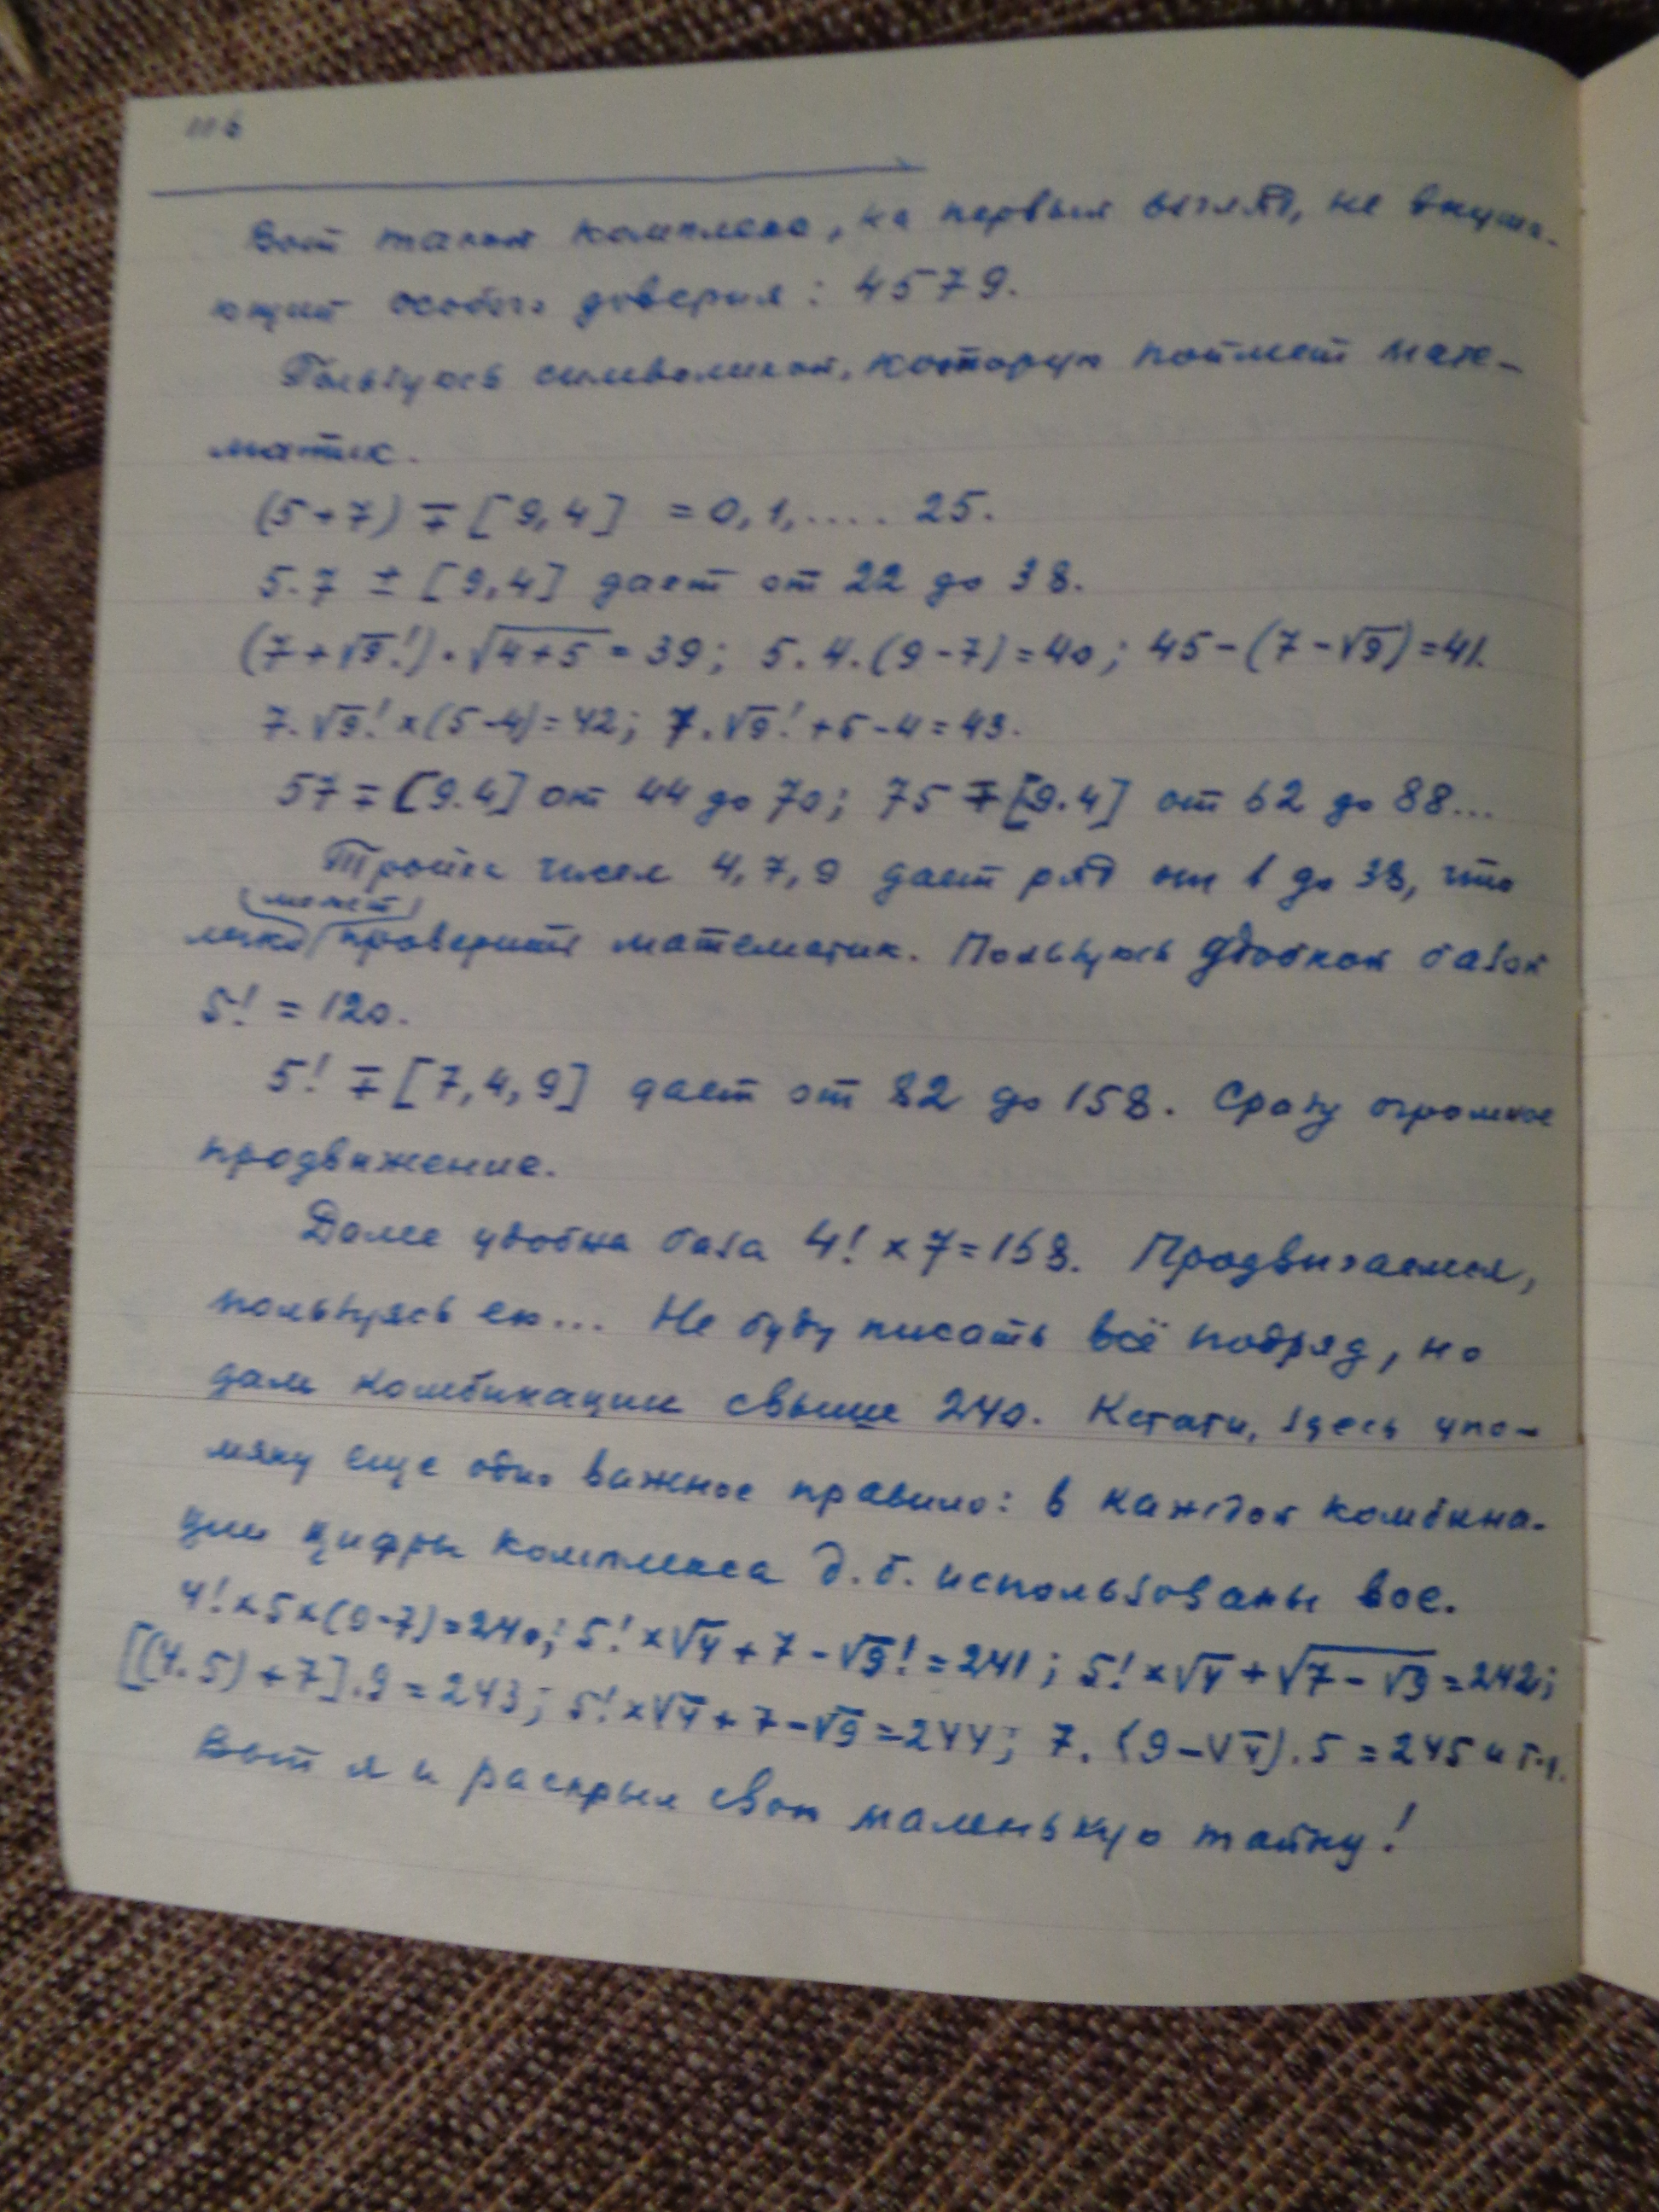 116
Вот такой комплекс, на первый взгляд, не внуша-
ющий особого доверия: 4579.
Пользуюсь символикой, которую поймет мате-
матик.
(5+7) ∓ [9,4] = 0,1,.... 25.
5.7 ± [9,4] дает от 22 до 38.
(7+√9!)·√4+5 = 39; 5.4.(9-7)=40; 45-(7-√9)=41.
7.√9!×(5-4)=42; 7.√9!+5-4=43.
57∓[9.4] от 44 до 70; 75∓[9.4] от 62 до 88...
Тройка чисел 4,7,9 дает ряд от 1 до 38, что
(может)
легко проверить математик. Пользуюсь удобной базой
5! = 120.
5! ∓ [7,4,9] дает от 82 до 158. Сразу огромное
продвижение.
Далее удобна база 4!×7=168. Продвигаемся,
пользуясь ею... Не буду писать всё подряд, но
дам комбинации свыше 240. Кстати, здесь упо-
мяну еще одно важное правило: в каждой комбина-
ции цифры комплекса д.б. использованы все.
4!×5×(9-7)=240; 5!×√4+7-√9!=241; 5!×√4+√7-√9=242;
[(4.5)+7].9=243; 5!×√4+7-√9=244; 7.(9-√4).5=245 и т.д.
Вот я и раскрыл свою маленькую тайну!